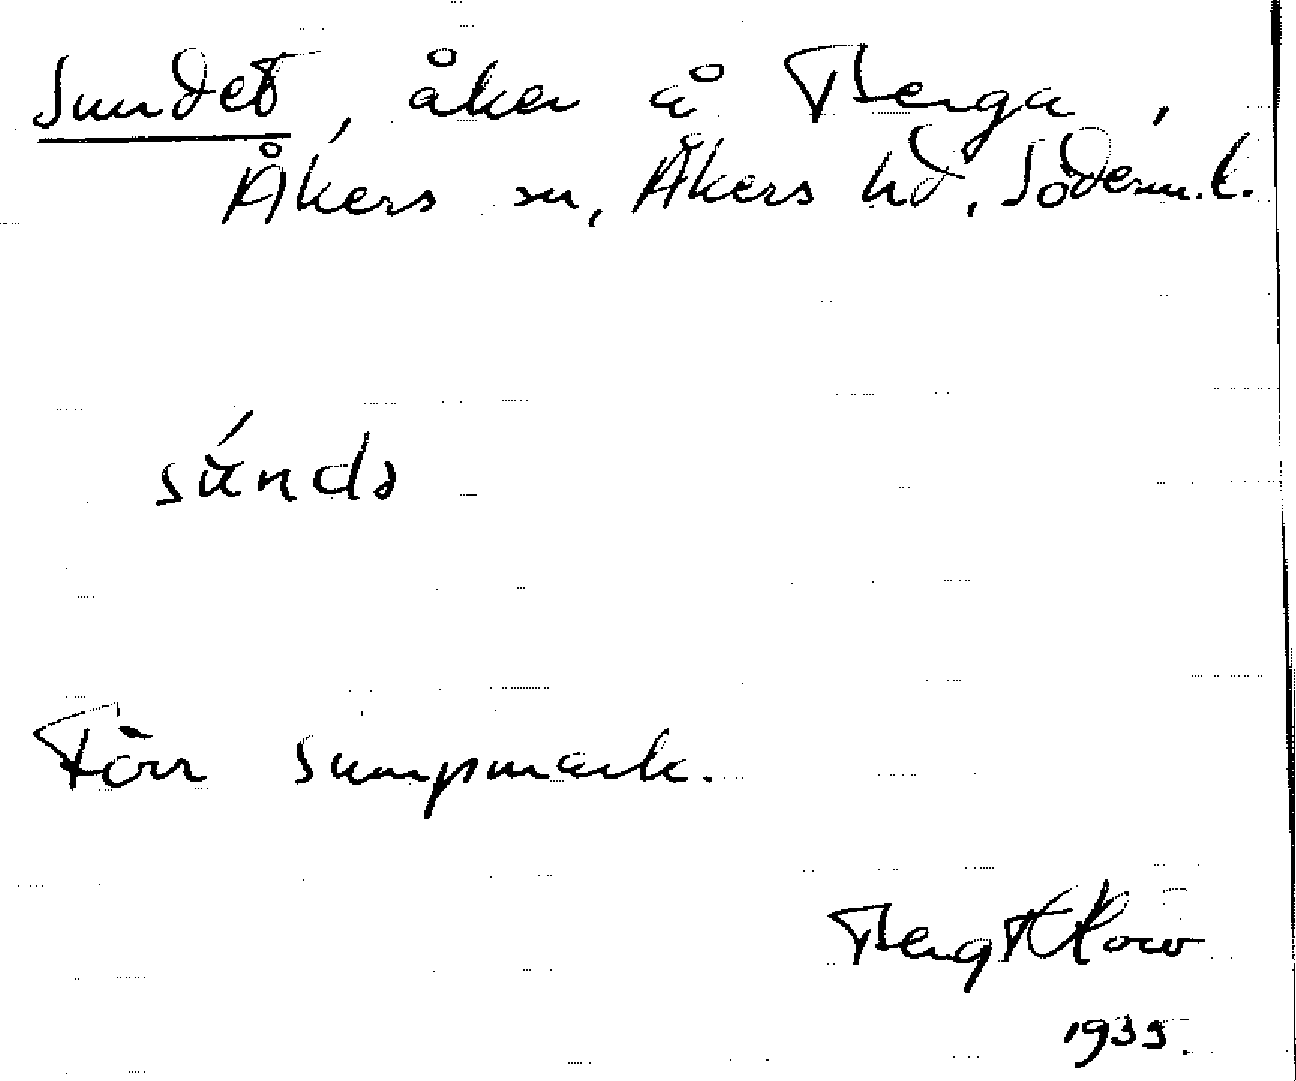 Sundet, åker å Berga,
Åkers sn, Åkers hd, Söderm.l.
súndə
Förr sumpmark.
1935.